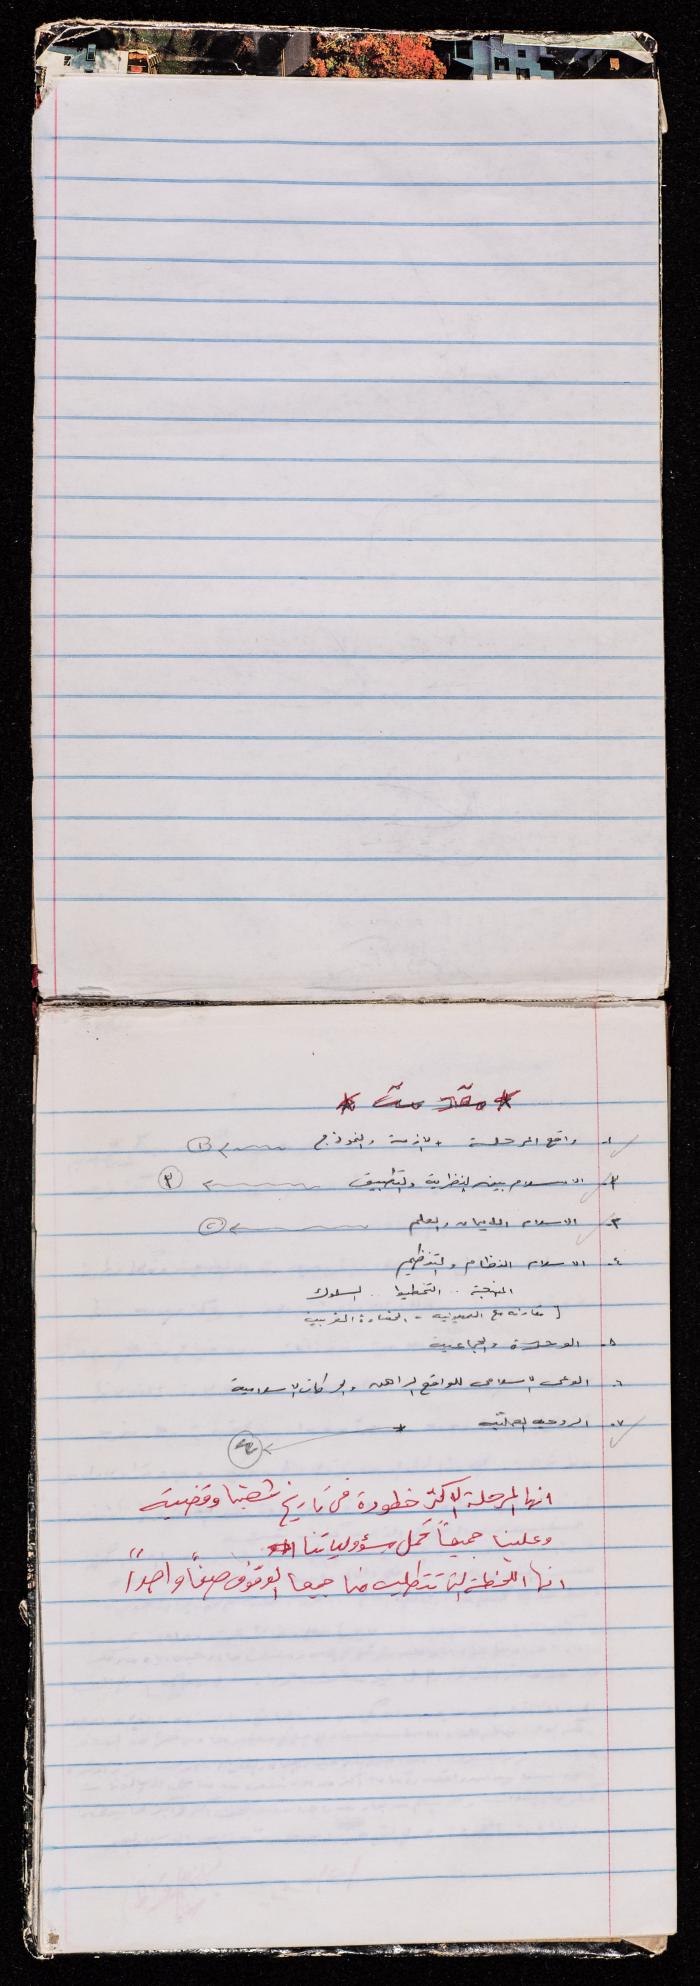 * مقدمة *
١- واقع المرحلة + الازمة والنموذج ①
٣- الاسلام بين النظرية والتطبيق ③
٢- الاسلام الايمان والعلم ②
٤- الاسلام النظام والتنظيم
المنهجية .. التخطيط .. السلوك
[ مقارنة مع الصهيونية - الحضارة الغربية
٥- الوحدة والجماعية
٦- الوعي الاسلامي للواقع الراهن والحركات الاسلامية
٧- الروحية
*
انها المرحلة الاكثر خطورة في تاريخ شعبنا وقضيته
وعلينا جميعاً تحمل مسؤولياتنا
انها اللحظة التي تتطلب منا جميعا الوقوف صفاً واحداً